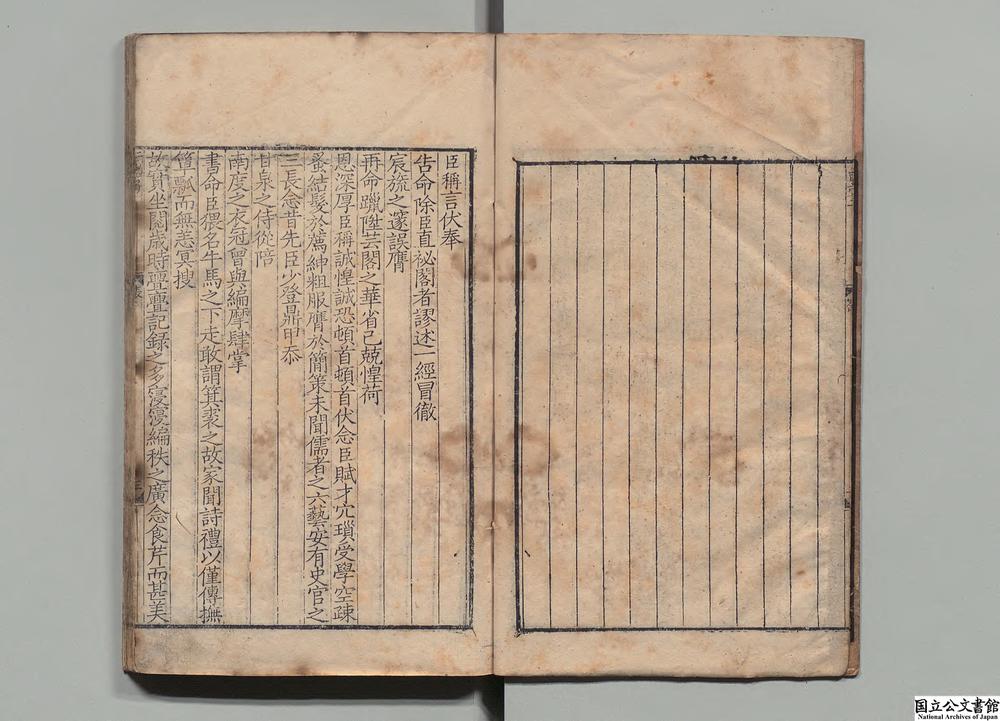 臣稱言伏奉
告命除臣直祕閣者謬述一經冒徹
宸旒之邃誤膺
再命躐陞芸閣之華省己兢惶荷
恩深厚臣稱誠惶誠恐頓首頓首伏念臣賦才宂瑣受學空疎
蚤結髮於薦紳粗服膺於簡策未聞儒者之六藝安有史官之
三長念昔先臣少登鼎甲忝
甘泉之侍從陪
南度之衣冠曾與編摩肆掌
書命臣猥名牛馬之下走敢謂箕裘之故家聞詩禮以僅傳撫
簞瓢而無恙冥搜
故實坐閱歲時亹亹記錄之多寖寖編秩之廣念食芹而甚美
国立公文書館
National Archives of Japan